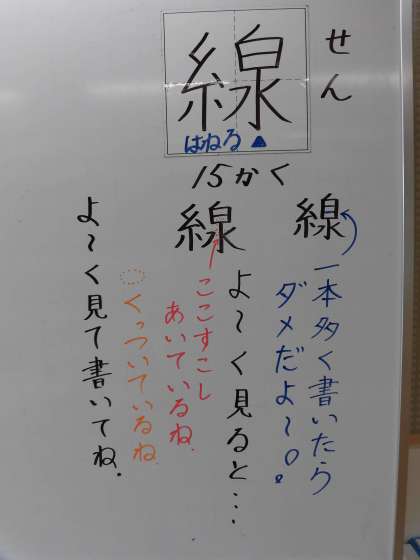 線
せん
はねる
15かく
線
一本多く書いたら
ダメだよ〜。
線
よ〜く見ると…
ここすこし
あいているね.
くっついているね.
よ〜く見て書いてね.